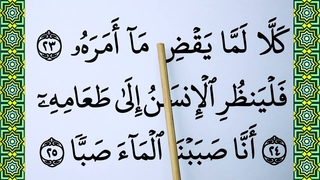 كَلَّا لَمَّا يَقْضِ مَآ أَمَرَهُۥ ٢٣
فَلْيَنظُرِ ٱلْإِنسَٰنُ إِلَىٰ طَعَامِهِۦٓ ٢٤
أَنَّا صَبَبْنَا ٱلْمَآءَ صَبًّا ٢٥